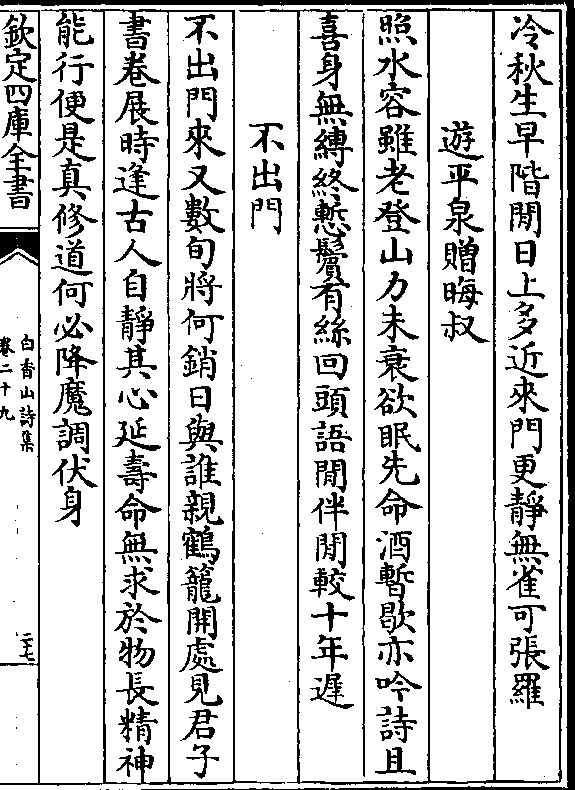 冷秋生早階閒日上多近來門更靜無雀可張羅
遊平泉贈晦叔
照水容雖老登山力未衰欲眠先命酒暫歇亦吟詩且
喜身無縛終慙鬢有絲回頭語閒伴閒較十年遲
不出門
不出門來又數旬將何銷日與誰親鶴籠開處見君子
書卷展時逢古人自靜其心延壽命無求於物長精神
能行便是真修道何必降魔調伏身
欽定四庫全書
白香山詩集
卷二十九
二七